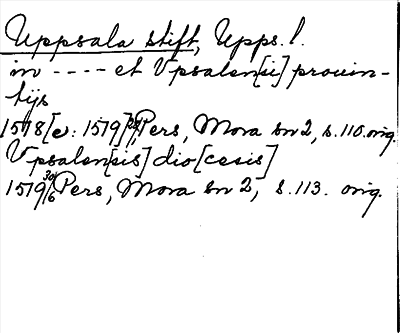 Uppsala stift, Upps. l.
in ---- et Vpsalen[si] prouin-
tijs
1578[e: 1579] Pers, Mora sn 2, s. 110. orig.
Vpsalen[sis] dio[cesis]
1579 30/6 Pers, Mora sn 2, s. 113. orig.